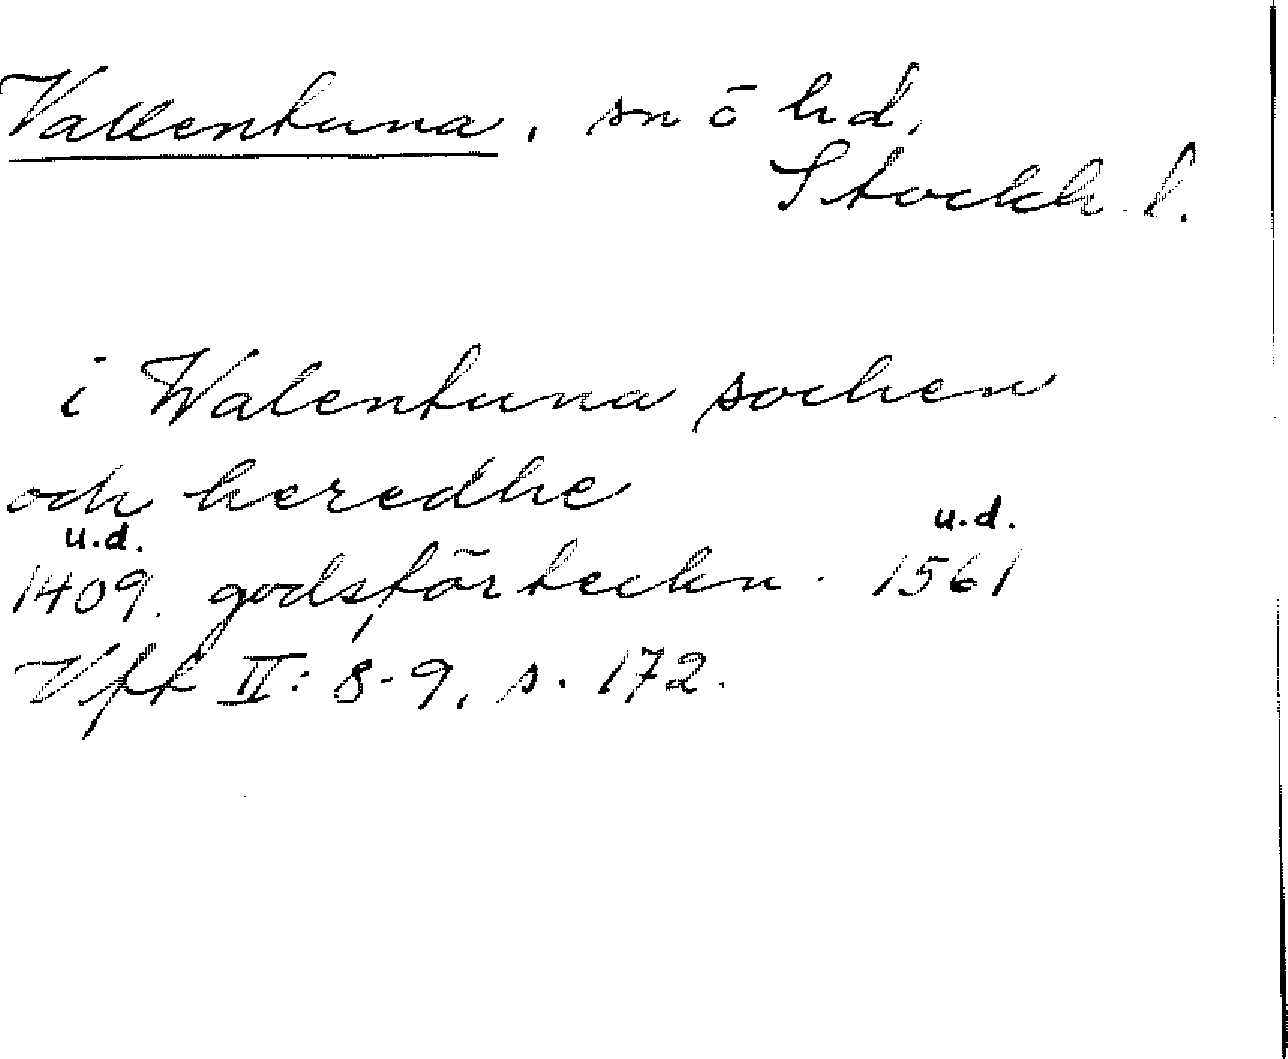 Vallentuna, sn ō hd,
Stockh. l.
i Walentuna sochen
och heredhe
u.d. u.d.
1409. godsförteckn. 1561
Vft II: 8-9, s. 172.